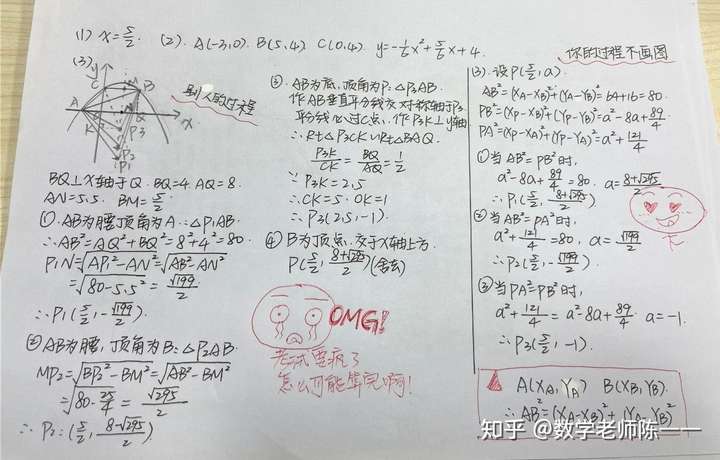 (1) x=5/2. (2). A(-3,0). B(5,4) C(0,4). y=-1/6x²+5/6x+4.
(3)
y
C
M
B
A
N
Q
x
K
P3
P2
P1
别人的过程
BQ⊥X轴于Q. BQ=4. AQ=8.
AN=5.5. BM=5/2.
①. AB为腰顶角为A:△P1AB.
∴AB²=AQ²+BQ²=8²+4²=80.
P1N=√(AP1²-AN²)=√(AB²-AN²)
=√(80-5.5²)=√199/2
∴P1(5/2,-√199/2).
②AB为腰,顶角为B:△P2AB.
MP2=√(BP2²-BM²)=√(AB²-BM²)
=√(80-25/4)=√295/2
∴P2:(5/2,(8-√295)/2)
③ AB为底,顶角为P:△P3AB.
作AB垂直平分线交对称轴于P3
平分线必过C点,作P3K⊥y轴
∴Rt△P3CK∽Rt△BAQ.
P3K/CK=BQ/AQ=1/2
∵P3K=2.5
∴CK=5.OK=1
∴P3(2.5,-1).
④ B为顶点.交于X轴上方.
P(5/2,(8+√295)/2)(舍去)
OMG!
老师要疯了
怎么可能算完啊!
你的过程不画图
(3).设P(5/2,a).
AB²=(XA-XB)²+(YA-YB)²=64+16=80.
PB²=(XP-XB)²+(YP-YB)²=a²-8a+89/4
PA²=(XP-XA)²+(YP-YA)²=a²+121/4
①当AB²=PB²时,
a²-8a+89/4=80. a=(8±√295)/2
∴P1(5/2,(8-√295)/2)
②当AB²=PA²时,
a²+121/4=80, a=±√199/2
∴P2(5/2,-√199/2).
③当PA²=PB²时,
a²+121/4=a²-8a+89/4. a=-1.
∴P3(5/2,-1).
A(XA,YA) B(XB,YB).
∴AB²=(XA-XB)²+(YA-YB)²
知乎 @数学老师陈一一